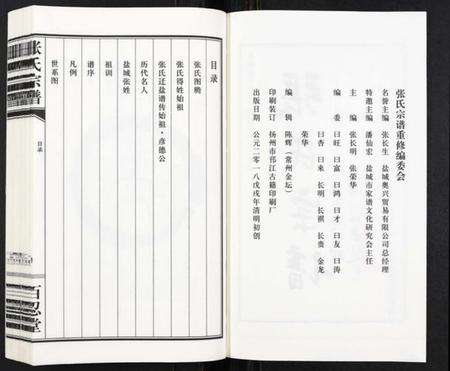 张氏宗谱重修编委会
名誉主编 张长生 盐城奥兴贸易有限公司总经理
特邀主编 潘仙宏 盐城市家谱文化研究会主任
主编 张长明 张荣华
编委 曰旺 曰富 曰鸿 曰才 曰友 曰涛
曰杏 曰来 长明 长祺 长贵 金龙
荣华
编辑 陈辉（常州金坛）
印刷装订 扬州市邗江古籍印刷厂
出版日期 公元二零一八戊戌年清明初创
目录
张氏图腾
张氏得姓始祖
张氏迁盐谱传始祖·彦德公
历代名人
盐城张姓
祖训
谱序
凡例
世系图
张氏宗谱
目录
百忍堂